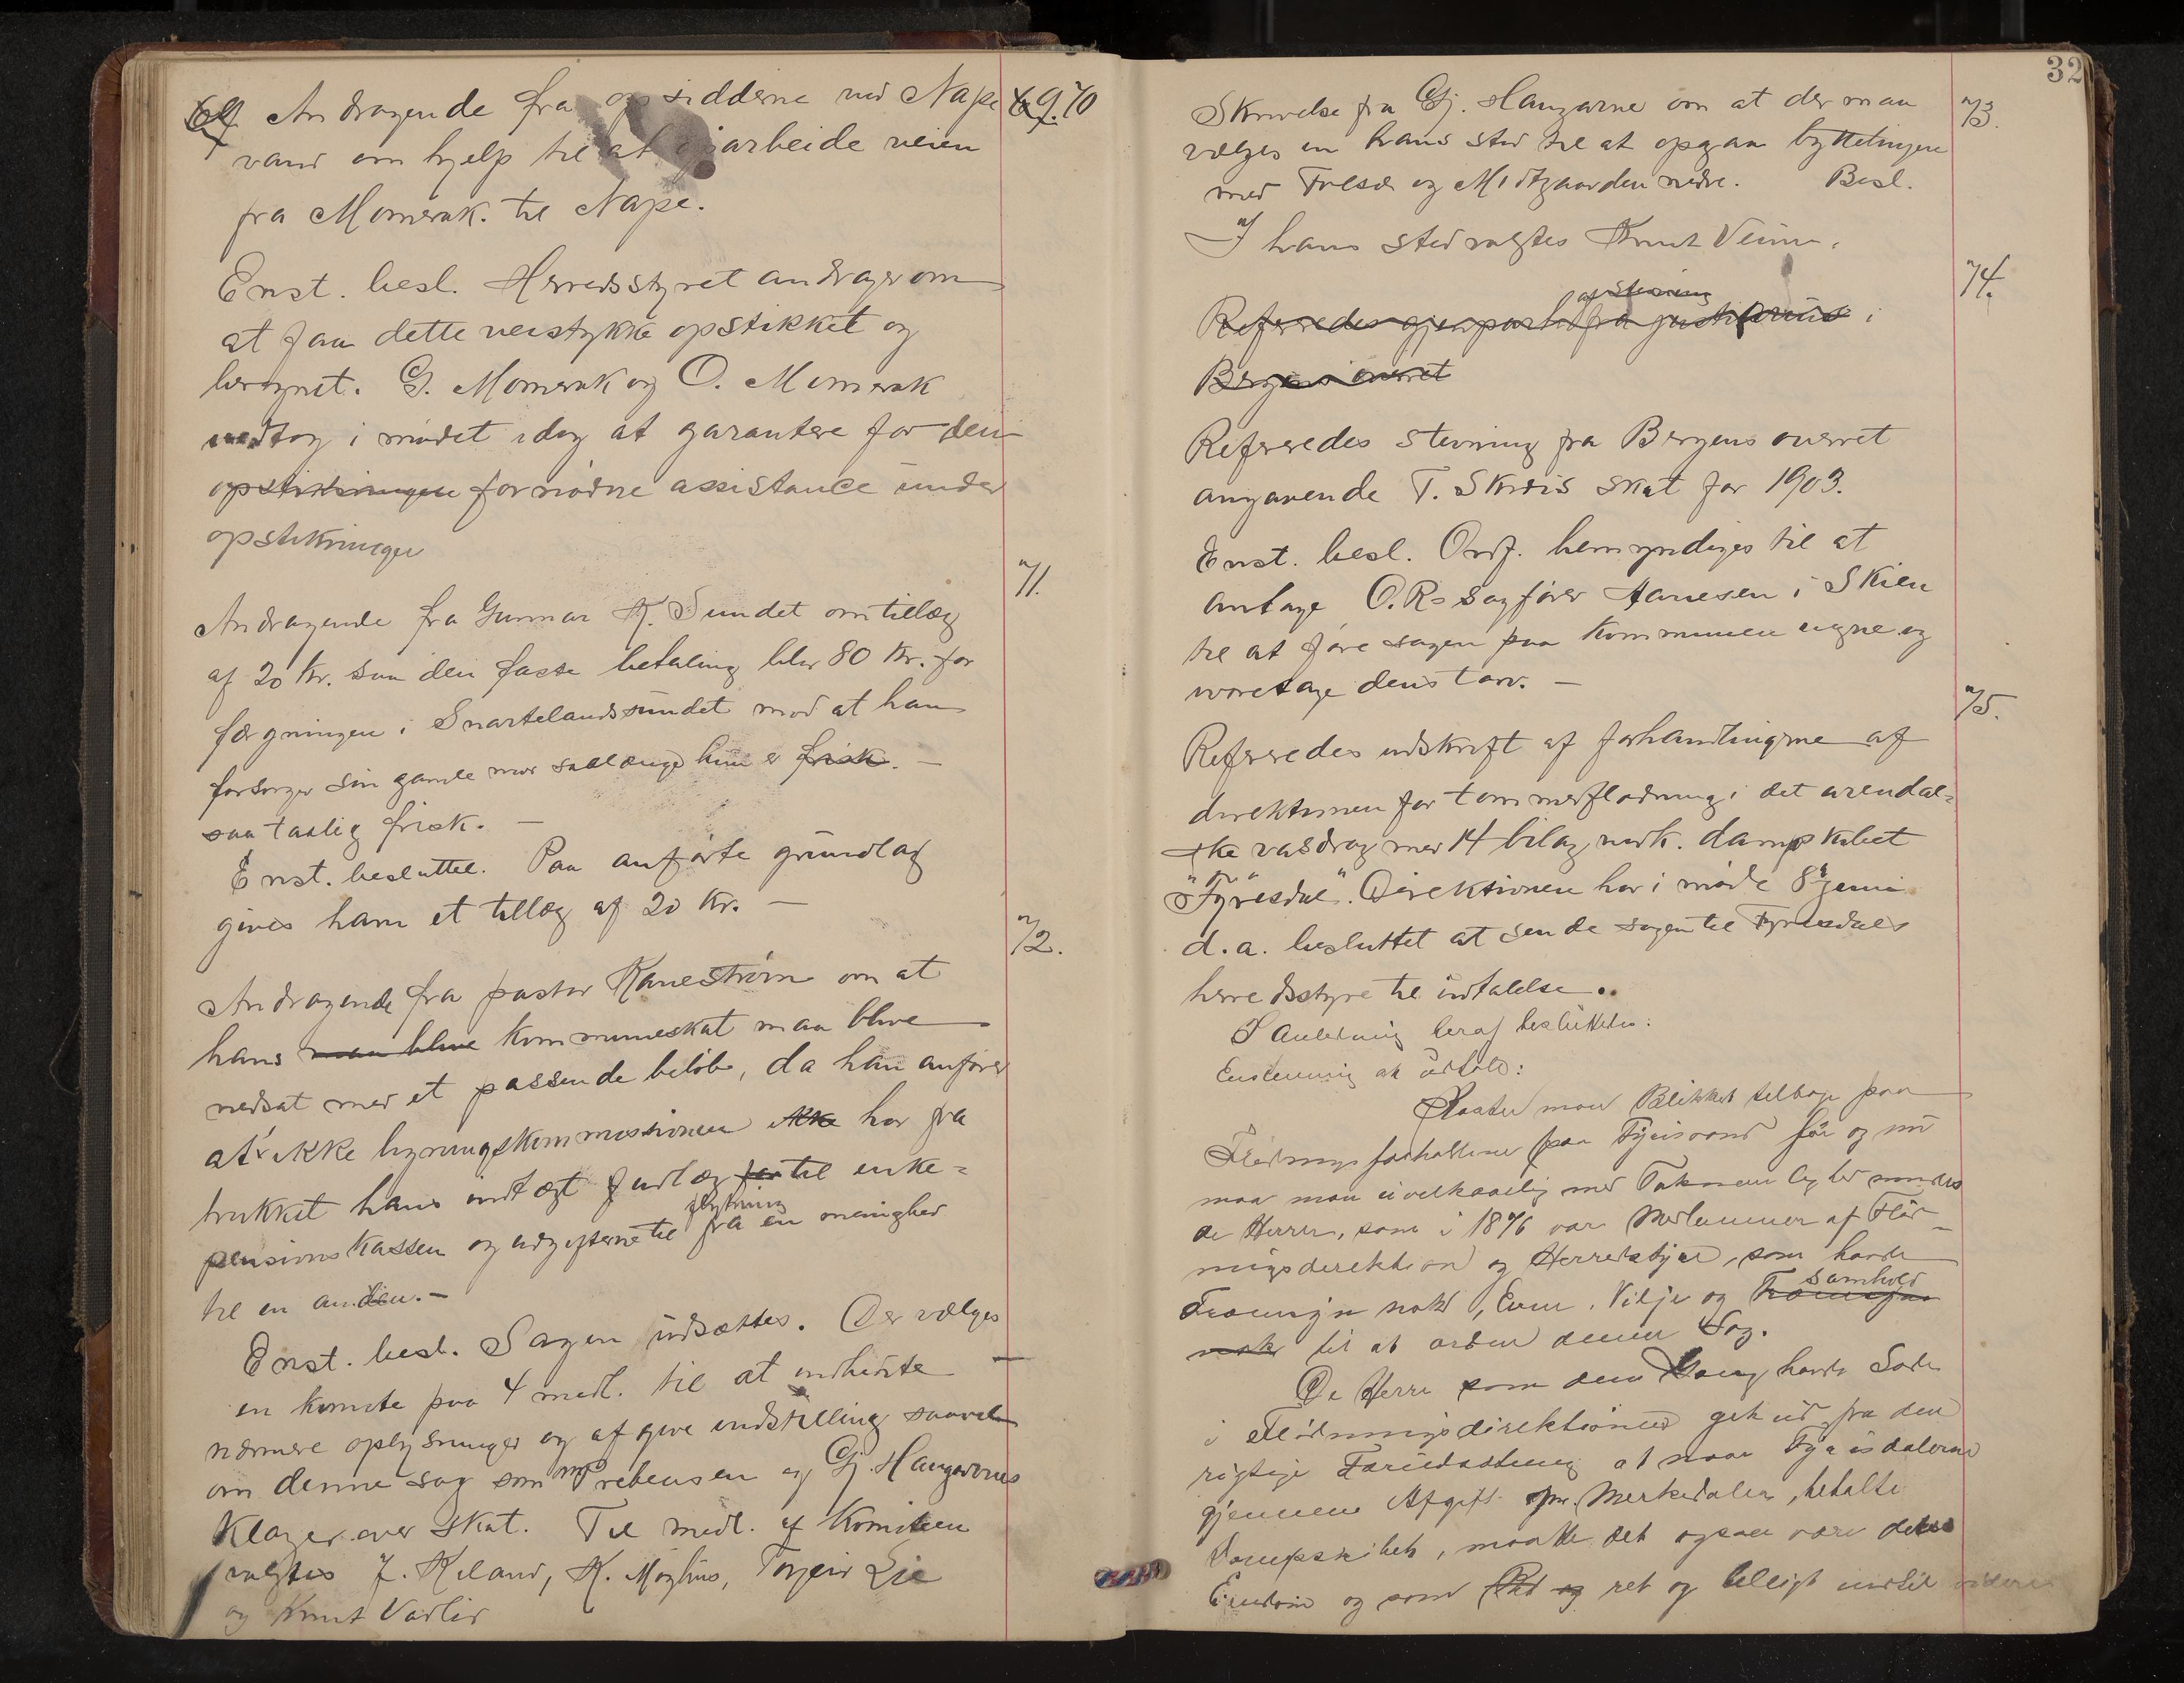 69. Andragende fra opsidderne ved Nape 69. 70
vand om hjelp til at oparbeide veien
fra Momrak. til Nape.
Enst. besl. Herredsstyret andrager om
at faa dette veistykke opstikket og
beregnet. G. Momrak og O. Momrak
vedtog i mødet idag at garantere for den
opstikningen fornødne assistance under
opstikningen
71.
Andragende fra Gunnar K. Sundet om tillæg
af 20 kr. saa den faste betaling blir 80 kr. for
færgningen i Snartelandssundet mod at han
forsørger sin gamle mor saalænge hun er frisk. —
saa taalig frisk. —
Enst. besluttet. Paa anførte grundlag
gives ham et tillæg af 20 kr. —
72.
Andragende fra pastor Kaneström om at
hans maa blive kommuneskat maa blive
nedsat med et passende beløb, da han anfører
at ikke ligningskommissionen ikke har fra
trukket hans indtægt indlæg for til enke-
pensionskassen og udgifterne til flytning fra en menighed
til en anden. —
Enst. besl. Sagen udsættes. Der vælges
en komite paa 4 medl. til at indhente
nærmere oplysninger og afgive indstilling saavel
om denne sag som Prebensen og Gj. Haugarnes
klager over skat. Til medl. af komiteen
valgtes J. Kiland, K. Moghus, Torgeir Lie
og Knut Vadlid
32
73.
Skrivelse fra Gj. Haugarne om at der maa
vælges en hans sted til at opgaa byttelinjen
med Folsæ og Midtgaarden nedre. Besl.
I hans sted valgtes Knut Veum.
74.
Refereredes gjenpart af stevning fra justitiarius i
Bergens overret
Refereredes stevning fra Bergens overret
angaaende T. Skreis skat for 1903.
Enst. besl. Ordf. bemyndiges til at
antage O.R-sagfører Hanesen i Skien
til at føre sagen paa kommunen vegne og
varetage dens tarv. —
75.
Refereredes udskrift af forhandlingerne af
direktionen for tømmerflødning i det arendal-
ske vasdrag med 14 bilag vedk. dampskibet
"Fyresdal". Direktionen har i møde 8de juni
d.a. besluttet at sende sagen til Fyresdals
herredsstyre til udtalelse.
I anledning heraf besluttedes:
Enstemmig at udtale:
Kaster man Blikket tilbage paa
Flødningsforholdene paa Fyrisvand før og nu
maa man uvelkaarlig med Taknemlighed mindes
de Herrer, som i 1876 var Medlemmer af Flød-
ningsdirektion og Herredsstyre, som havde
Framsyn nok, Evne, Vilje og Framsyn samhold
nok til at ordne denne Sag.
De Herrer som den Gang havde Sæde
i Flødningsdirektionen gik ud fra den
rigtige Forudsætning at naar Fyrisdølerne
gjennem Afgift pr. Merkedalen, betalte
Dampskibet, maatte det ogsaa være deres
Eiendom og som Ret og ret og billigt indtil videre